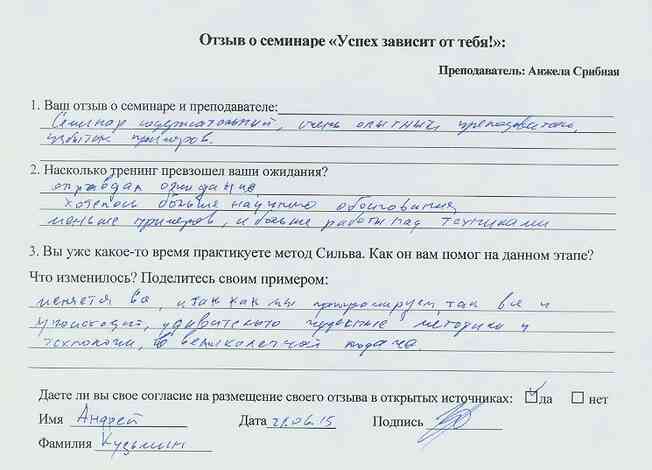 Отзыв о семинаре «Успех зависит от тебя!»:
Преподаватель: Анжела Срибная
1. Ваш отзыв о семинаре и преподавателе:
Семинар содержательный, очень опытный преподаватель,
избыток примеров.
2. Насколько тренинг превзошел ваши ожидания?
оправдал ожидание
хотелось больше научного обоснования,
меньше примеров, и больше работы над техниками
3. Вы уже какое-то время практикуете метод Сильва. Как он вам помог на данном этапе?
Что изменилось? Поделитесь своим примером:
меняется все, и так как мы программируем, так все и
происходит, удивительно чудесные методики и
технологии, в великолепной подаче.
Даете ли вы свое согласие на размещение своего отзыва в открытых источниках: да нет
Имя Андрей Дата 21.06.15 Подпись
Фамилия Кузьмин